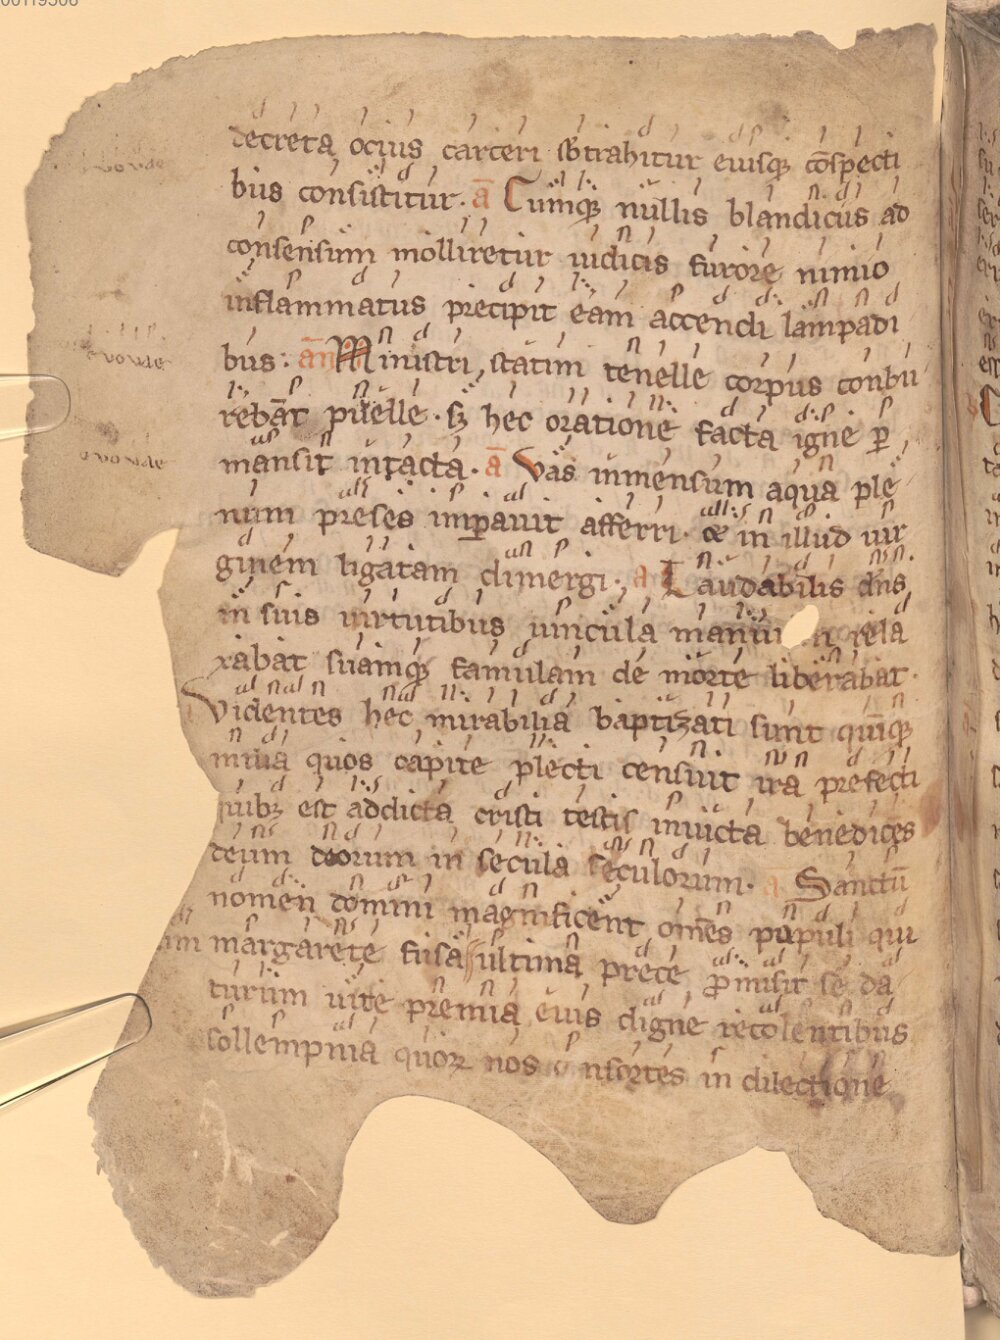 decreta ocius carceri sb̄trahitur eiusqꝫ cōspecti
bus consistitur. a̅ Cumqꝫ nullis blandicus ad
consensum molliretur iudicis furore nimio
inflammatus precipit eam accendi lampadi
bus. an̄ Ministri statim tenelle corpus conbu
rebāt puelle. sꝫ hec oratione facta igne ꝑ
mansit intacta. a̅ Vas inmensum aqua ple
num preses imꝑauit afferri. & in illud uir
ginem ligatam dimergi. a Laudabilis dn̄s
in suis uirtutibus uincula manuu rela
xabat suamqꝫ famulam de morte liberabat.
Videntes hec mirabilia baptizati sunt quīqꝫ
milia quos capite plecti censuit ira prefecti
quibꝫ est addicta cristi testis inuicta benedices
deum deorum in secula seculorum. a̅ Sanctū
nomen domini magnificent om̄es populi qui
margarete fusa ultima prece ꝓmisit se da
turum uite premia eius digne recolentibus
sollempnia quoꝝ nos consortes in dilectione